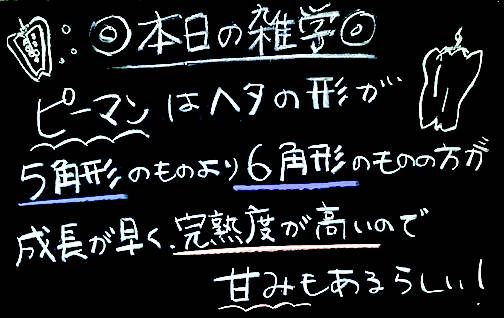 ◎本日の雑学◎
ピーマンはヘタの形が
5角形のものより6角形のものの方が
成長が早く、完熟度が高いので
甘みもあるらしい!